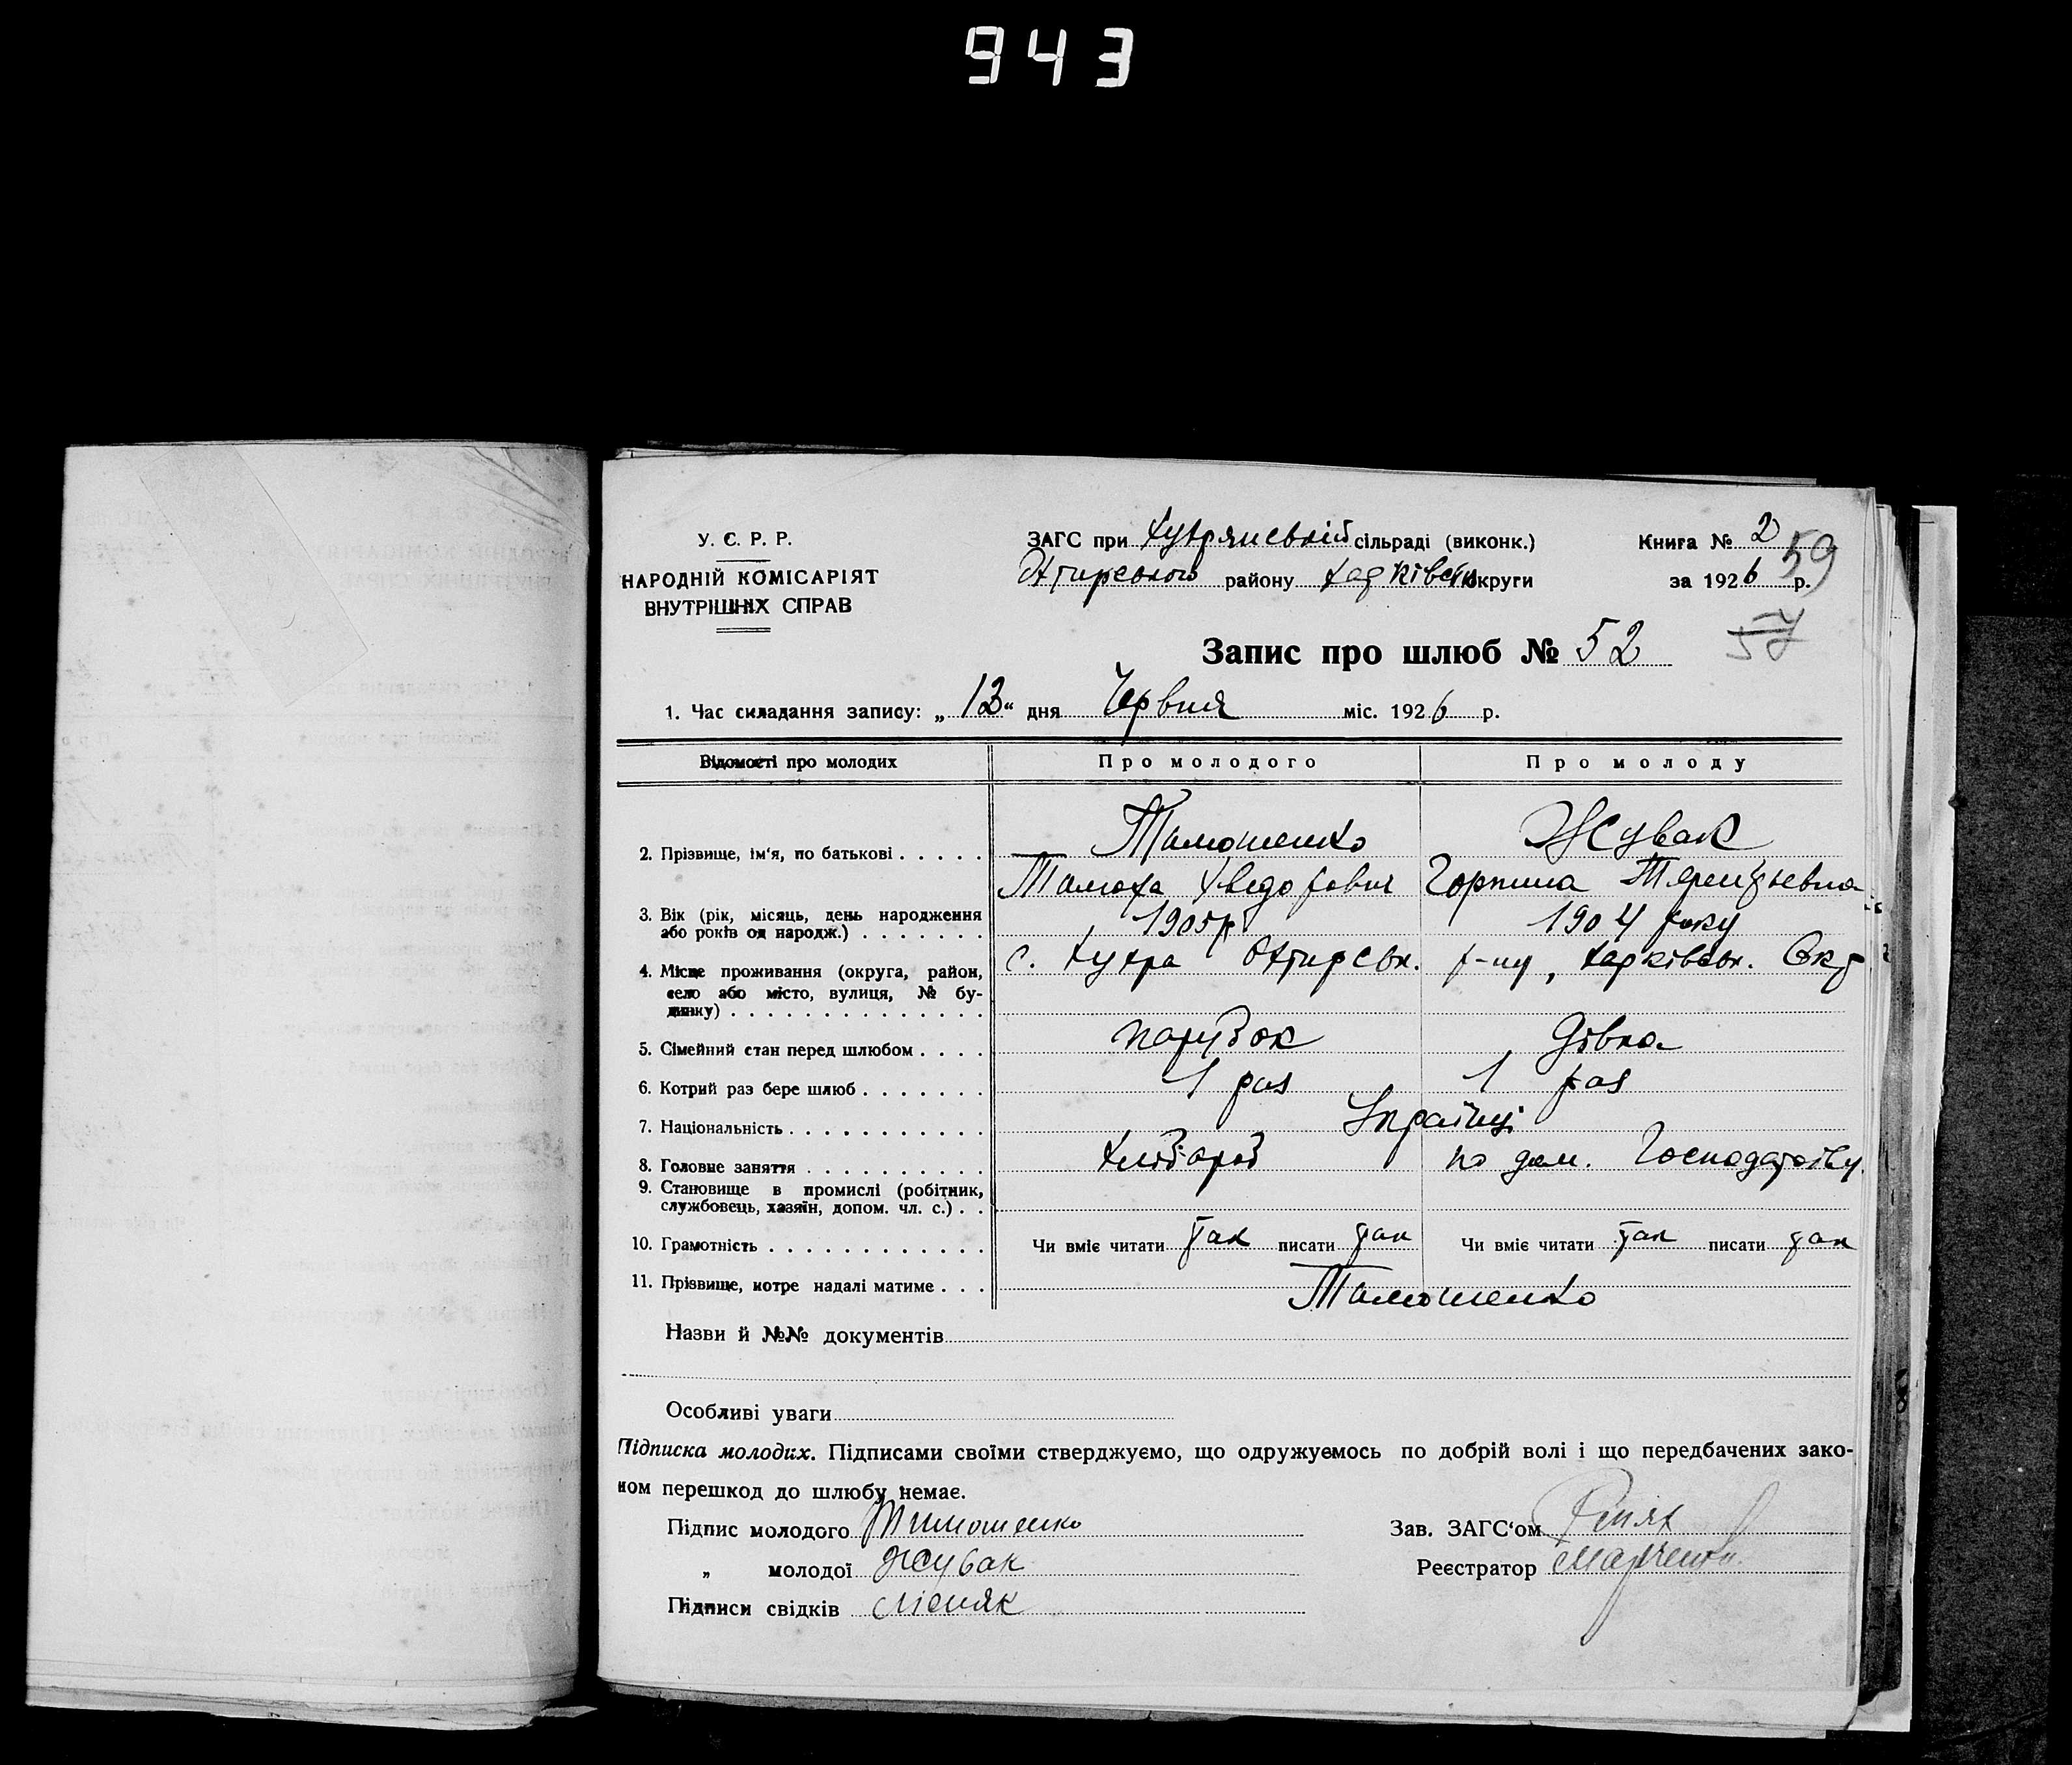 943
У. С. Р. Р.
НАРОДНІЙ КОМІСАРІЯТ
ВНУТРІШНІХ СПРАВ
ЗАГС при сільраді (виконк.)
району округи
Книга № 2
за 1926 р.
59
57
Запис про шлюб № 52
1. Час складання запису: „13“ дня Червня міс. 1926 р.
Відомості про молодих Про молодого Про молоду
2. Прізвище, ім'я, по батькові . . . . . Тимошенко Жувак
Тимоха Хведорович Горпина Терентьевна
3. Вік (рік, місяць, день народження
або років од народж.) . . . . . . . 1905р 1904 року
4. Місце проживання (округа, район,
село або місто, вулиця, № бу-
динку) . . . . . . . . . . . . . .
с. Хухра Охтирськ. р-ну, Харківськ. Окр
5. Сімейний стан перед шлюбом . . . . парубок Дівка
6. Котрий раз бере шлюб . . . . . . . 1 раз 1 раз
7. Національність . . . . . . . . . . . Українці
8. Головне заняття . . . . . . . . . . Хлібороб по дом. Господарству
9. Становище в промислі (робітник,
службовець, хазяїн, допом. чл. с.) . .
10. Грамотність . . . . . . . . . . . . Чи вміє читати так писати так Чи вміє читати так писати так
11. Прізвище, котре надалі матиме . . . Тимошенко
Назви й №№ документів
Особливі уваги
Підписка молодих. Підписами своїми стверджуємо, що одружуємось по добрій волі і що передбачених зако-
ном перешкод до шлюбу немає.
Підпис молодого Тимошенко
„ молодої Жувак
Підписи свідків
Зав. ЗАГС'ом
Реєстратор